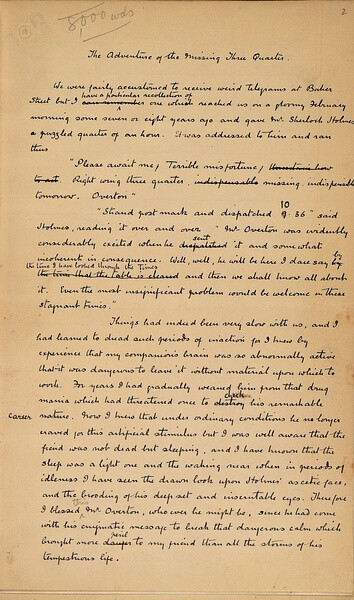 8,000 wds
2
The Adventure of the Missing Three Quarter.
We were fairly accustomed to receive weird telegrams at Baker
have a particular recollection of
Street but I can remember one which reached us on a gloomy February
morning some seven or eight years ago and gave Mr Sherlock Holmes
a puzzled quarter of an hour. It was addressed to him and ran
thus
"Please await me, Terrible misfortune, Uncertain how
to act. Right wing three quarter, indispensable missing. indispensable
tomorrow. Overton"
10
"Strand post mark and dispatched 9.36" said
Holmes, reading it over and over. "Mr Overton was evidently
sent
considerably excited when he dispatched it and somewhat
incoherent in consequence. Well, well, he will be here I dare say by
the time I have looked through the Times
the time that the table is cleared and then we shall know all about
it. Even the most insignificant problem would be welcome in these
stagnant times."
Things had indeed been very slow with us, and I
had learned to dread such periods of inaction for I knew by
experience that my companion's brain was so abnormally active
that it was dangerous to leave it without material upon which to
work. For years I had gradually weaned him from that drug
check
mania which had threatened once to destroy his remarkable
career
nature. Now I knew that under ordinary conditions he no longer
craved for this artificial stimulus but I was well aware that the
fiend was not dead but sleeping, and I have known that the
sleep was a light one and the waking near when in periods of
idleness I have seen the drawn look upon Holmes' ascetic face,
and the brooding of his deep set and inscrutable eyes. Therefore
I blessed Mr Overton, whoever he might be, since he had come
with his enigmatic message to break that dangerous calm which
peril
brought more danger to my friend than all the storms of his
tempestuous life.